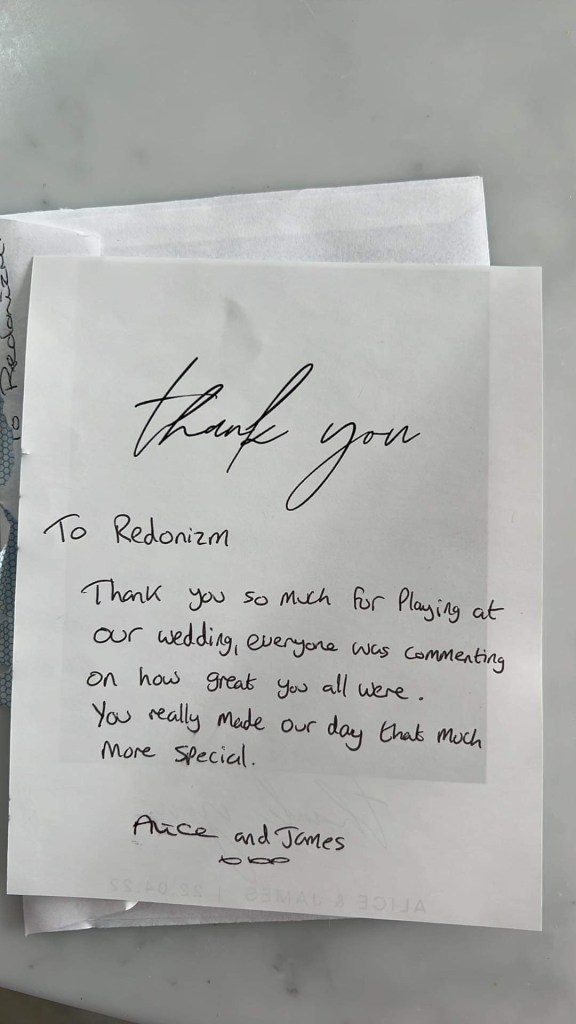 To Redonizm
thank you
To Redonizm
Thank you so much for Playing at
our wedding, everyone was commenting
on how great you all were.
You really made our day that much
more special.
Alice and James
ALICE & JAMES | 22.04.22